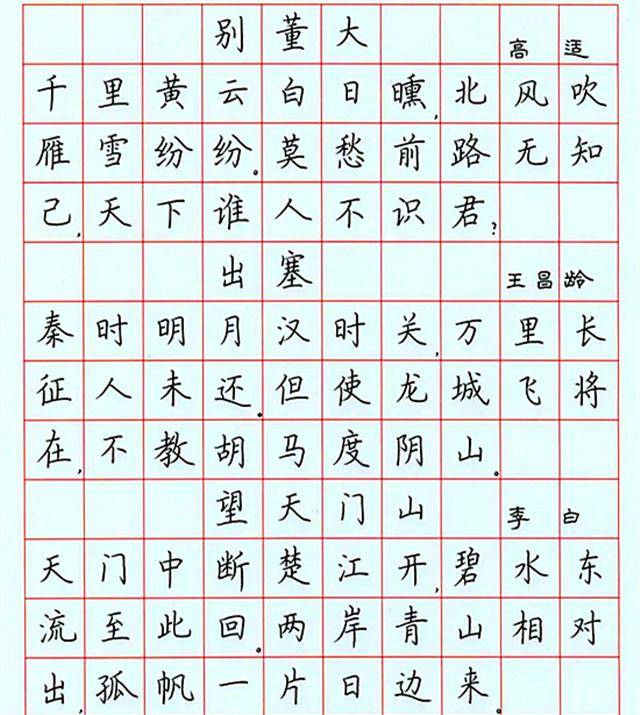 别董大 高适
千里黄云白日曛,北风吹
雁雪纷纷。莫愁前路无知
己,天下谁人不识君?
出塞 王昌龄
秦时明月汉时关,万里长
征人未还。但使龙城飞将
在,不教胡马度阴山。
望天门山 李白
天门中断楚江开,碧水东
流至此回。两岸青山相对
出,孤帆一片日边来。